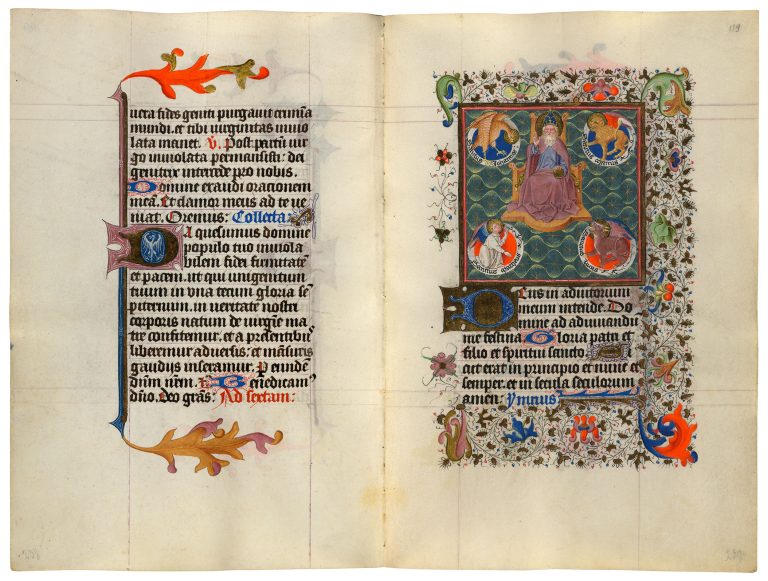 uera fides geniti purgauit crimina
mundi. et tibi uirginitas inuio
lata manet. V. Post partū uir
go inuiolata permansisti: dei
genitrix intercede pro nobis.
Domine exaudi orationem
meā. Et clamor meus ad te ve
niat. Oremus: Collecta
Da quesumus domine
populo tuo inuiola
bilem fidei firmitatē
et pacem. ut qui unigenitum
tuum in una tecum gloria sē
piternum. in ueritate nostri
corporis natum de uirgīe ma
tre confitentur. et a presentibus
liberentur aduersis: et mansuris
gaudijs inserantur. P eundē
dnūm Benedicam
dūo. Deo grās: Ad sextam:
119
Deus in adiutorium
meum intende. Do
mine ad adiuuandū
me festina Gloria patri et
filio et spiritui sancto.
sicut erat in principio et nunc et
semper. et in secula seculorum
amen: Ymnus